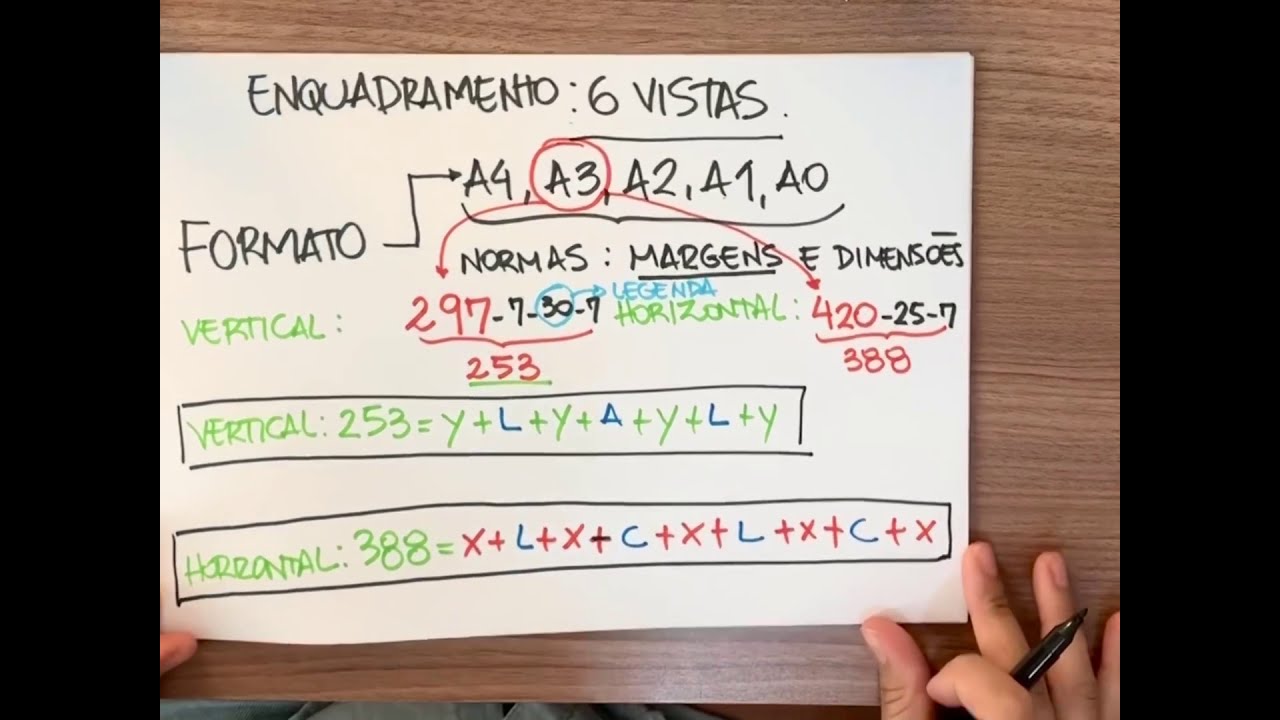 ENQUADRAMENTO: 6 VISTAS.
A4, A3, A2, A1, A0
FORMATO
NORMAS: MARGENS E DIMENSÕES
LEGENDA
VERTICAL: 297-7-30-7 HORIZONTAL: 420-25-7
253 388
VERTICAL: 253 = y+L+y+A+y+L+y
HORRONTAL: 388 = x+L+x+C+x+L+x+C+x